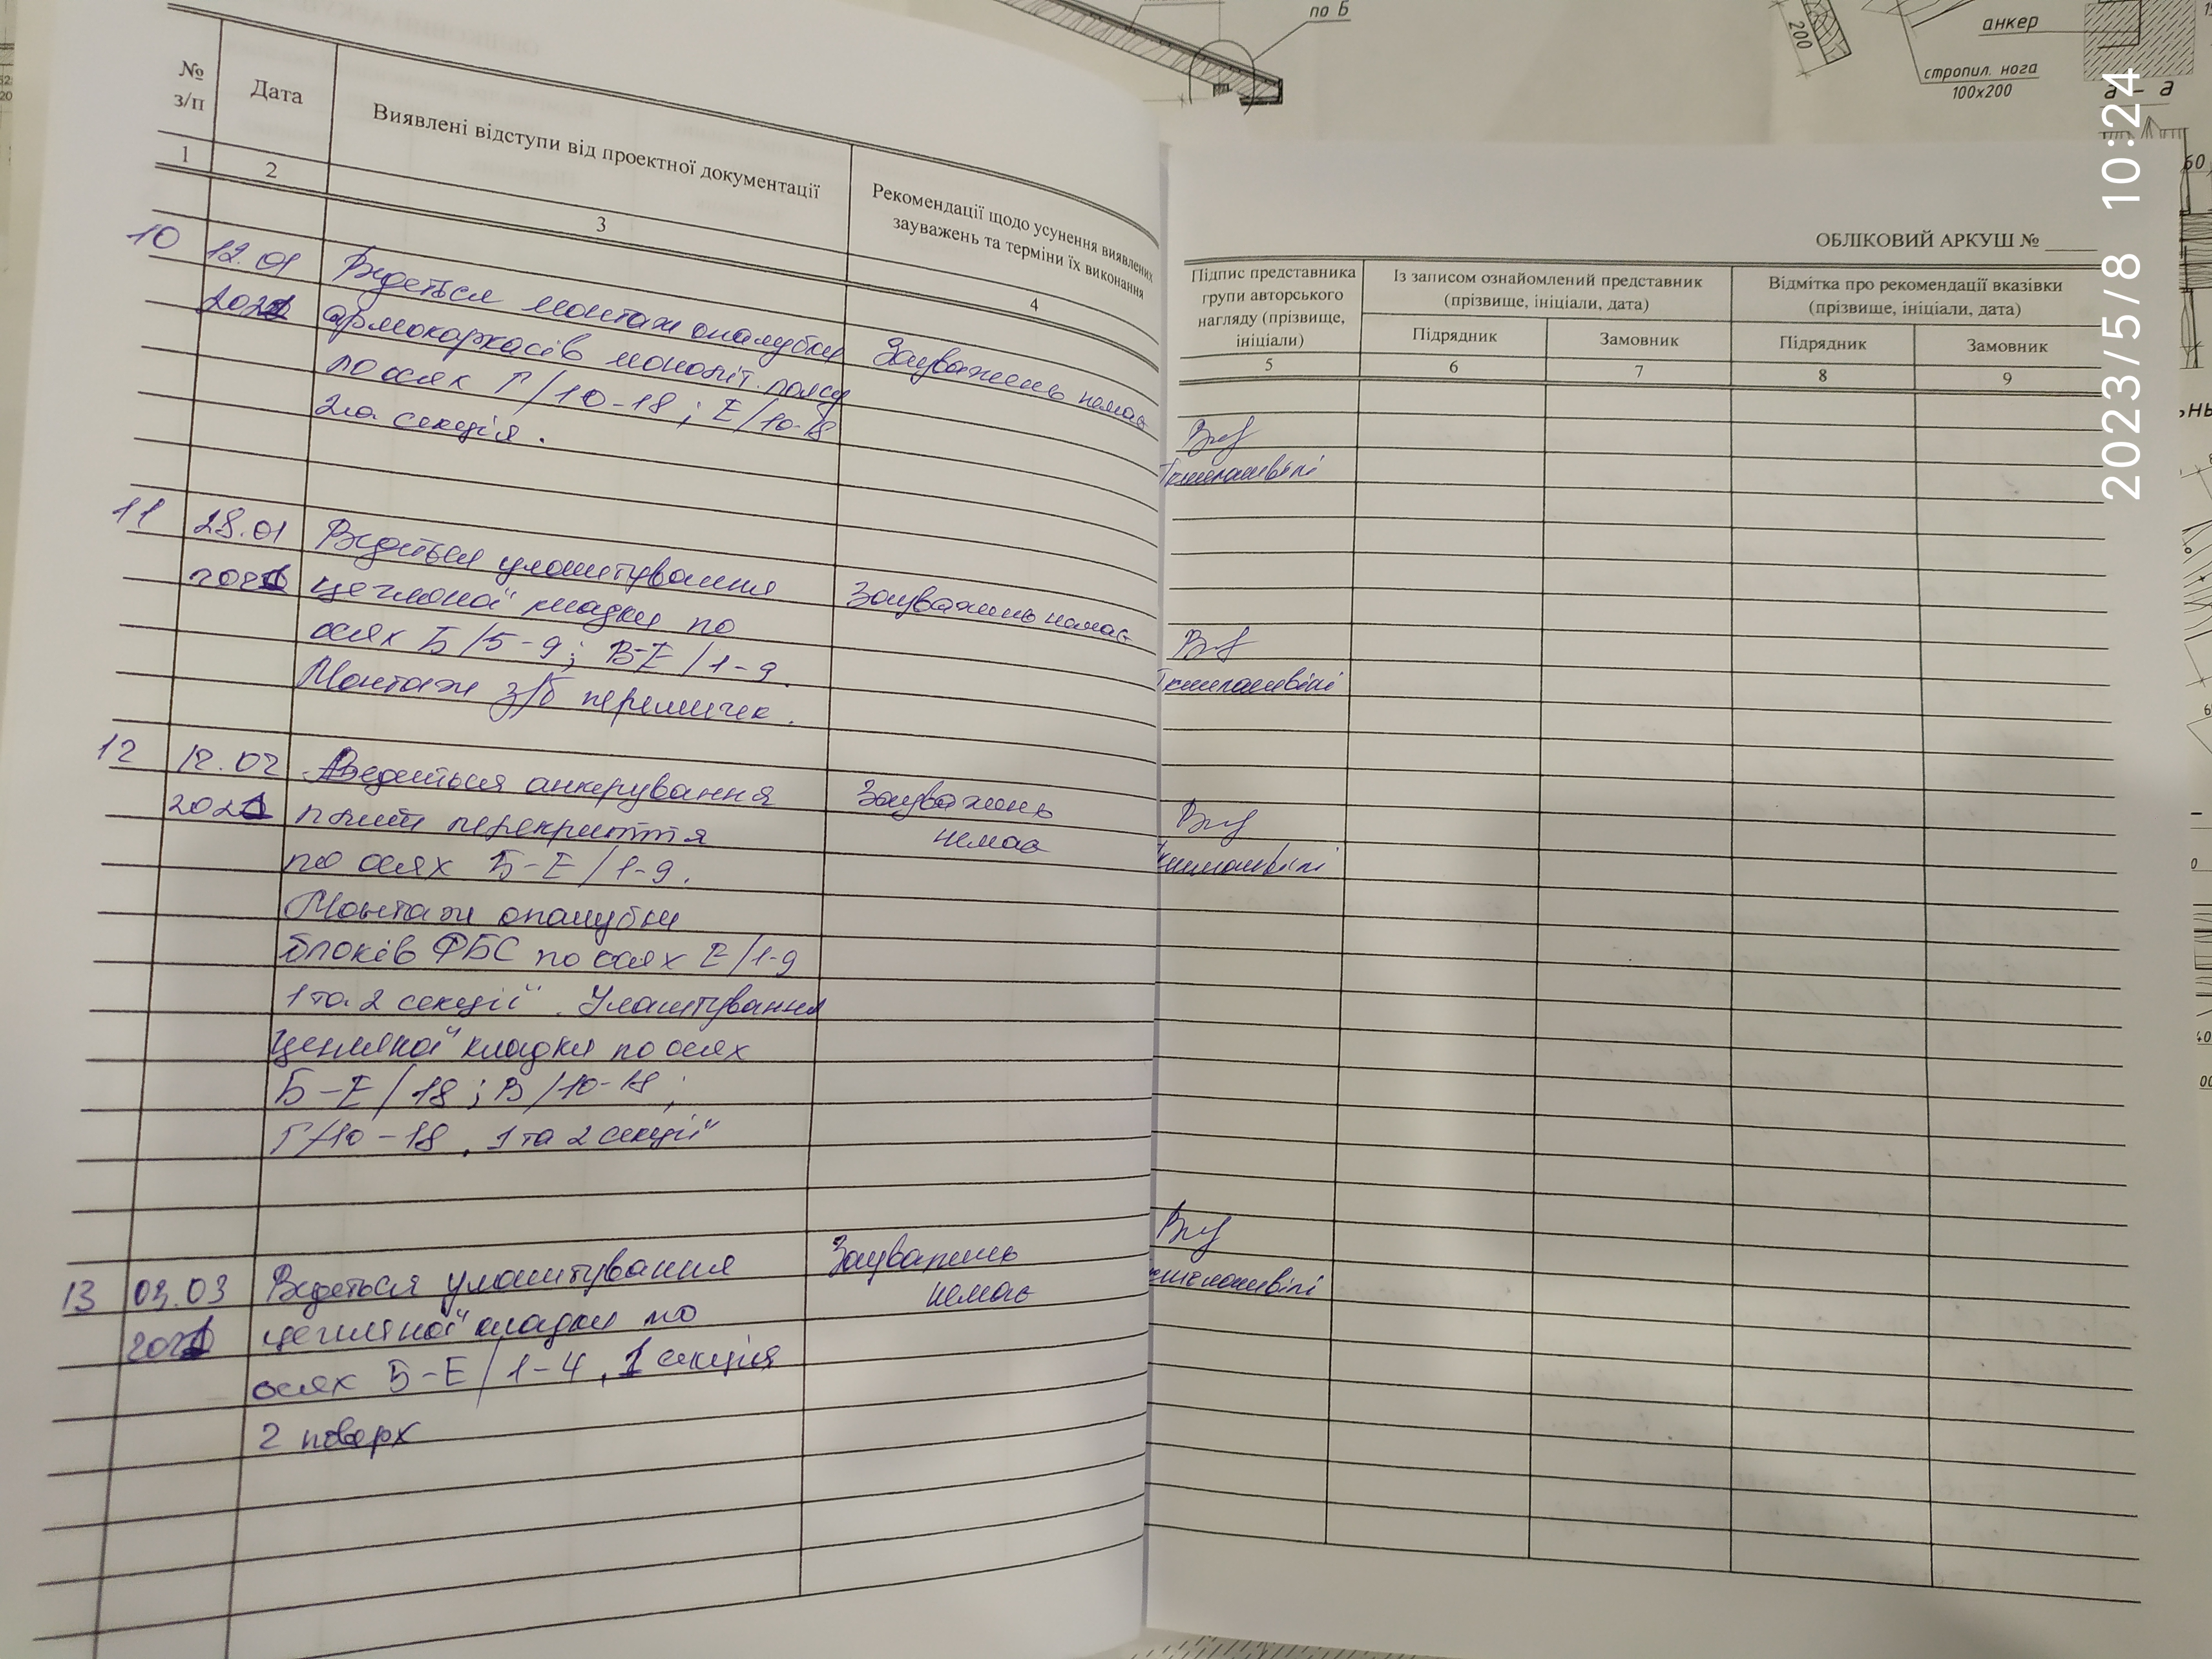 по Б
200
анкер
стропил. нога
100х200
а - а
2023/5/8 10:24
№
з/п
Дата
Виявлені відступи від проектної документації
Рекомендації щодо усунення виявлених
зауважень та терміни їх виконання
1
2
3
4
10
12.01
2021
Ведеться монтаж опалубки
армокаркасів моноліт. поясу
по осях Г/10-18; Е/10-18
2га секція.
Зауважень немає
11
28.01
2021
Ведеться улаштування
цегляної кладки по
осях Б/5-9; В-Е/1-9.
Монтаж з/б перемичек.
Зауважень немає
12
12.02
2021
Ведеться анкерування
плити перекриття
по осях Б-Е/1-9.
Монтаж опалубки
блоків ФБС по осях Е/1-9
1 та 2 секції. Улаштування
цегляної кладки по осях
Б-Е/18; В/10-18;
Г/10-18. 1 та 2 секції
Зауважень
немає
13
03.03
2021
Ведеться улаштування
цегляної кладки по
осях Б-Е/1-4, 1 секція
2 поверх
Зауважень
немає
ОБЛІКОВИЙ АРКУШ №
Підпис представника
групи авторського
нагляду (прізвище,
ініціали)
Із записом ознайомлений представник
(прізвище, ініціали, дата)
Відмітка про рекомендації вказівки
(прізвище, ініціали, дата)
Підрядник
Замовник
Підрядник
Замовник
5
6
7
8
9